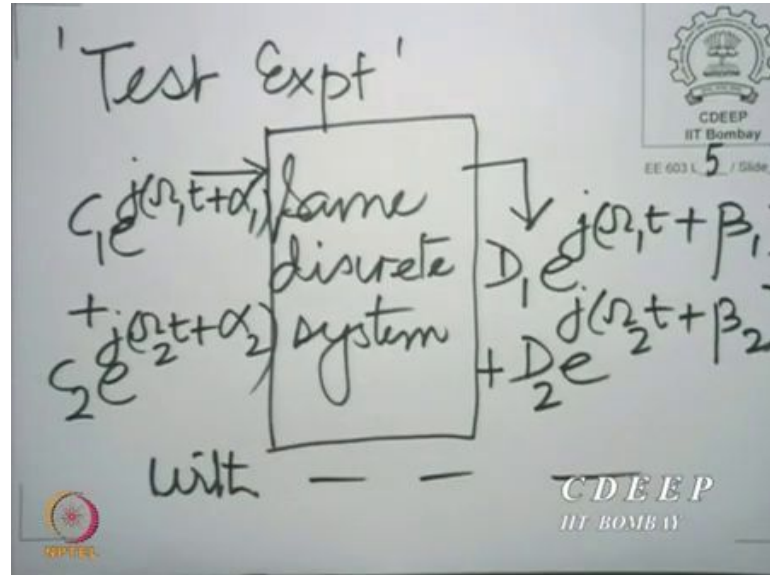 'Test Expt'
CDEEP
IIT Bombay
EE 603 L 5 / Slide
C₁e^j(Ω₁t+α₁)
+
C₂e^j(Ω₂t+α₂)
Same
discrete
system
D₁e^j(Ω₁t+β₁)
+ D₂e^j(Ω₂t+β₂
with — — —
CDEEP
IIT BOMBAY
NPTEL